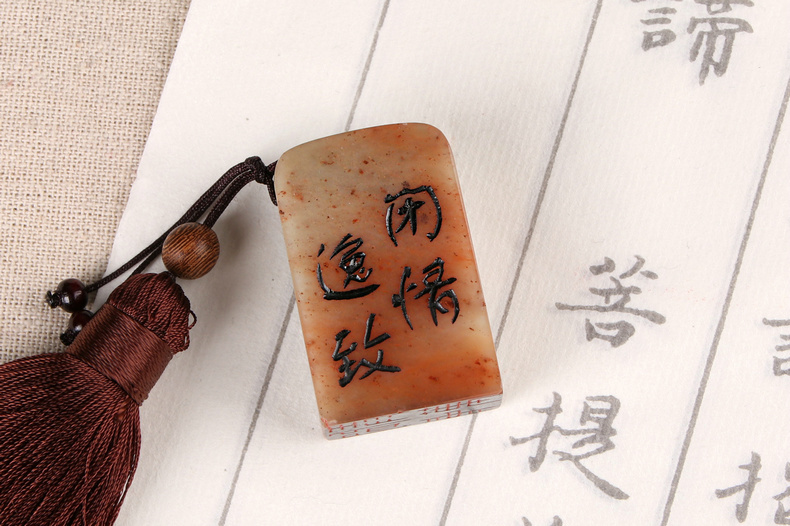 闲情
逸致
諦
菩提